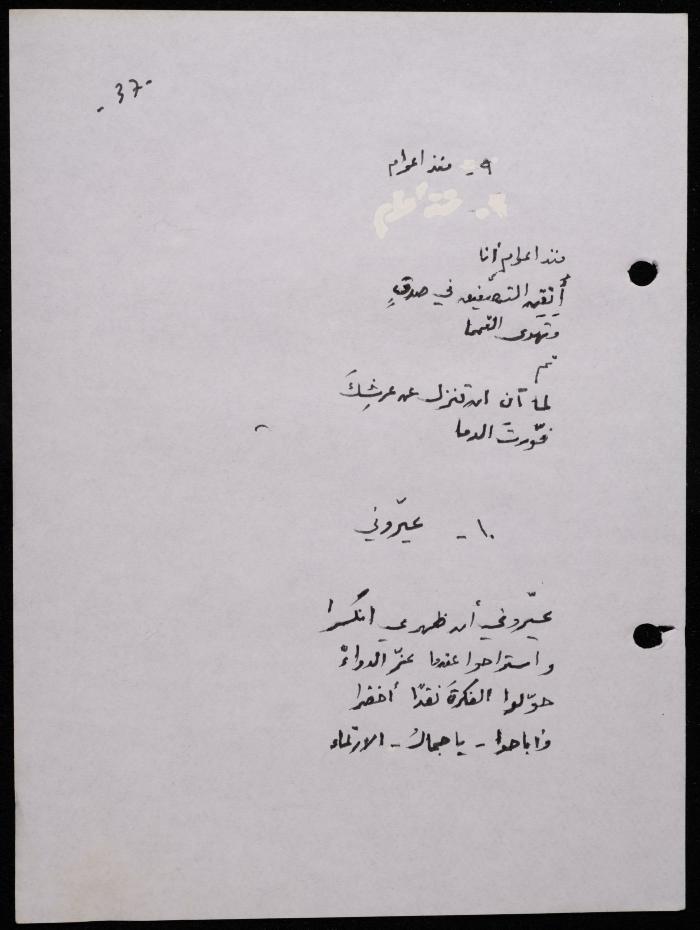 - 37 -
٩ - منذ اعوام
منذ اعوام أنا
أُتقِن التصفيق في صدقٍ
ثم
لما آن ان تنزل عن عرشِكَ
فوّرتَ الدما
١٠ - عيّروني
عيّروني أن ظهري انكسرا
واستراحوا عندما عزّ الدواءْ
حوّلوا الفكرةَ نقدًا أخضرا
وأباحوا - يا جمالُ - الارتماء